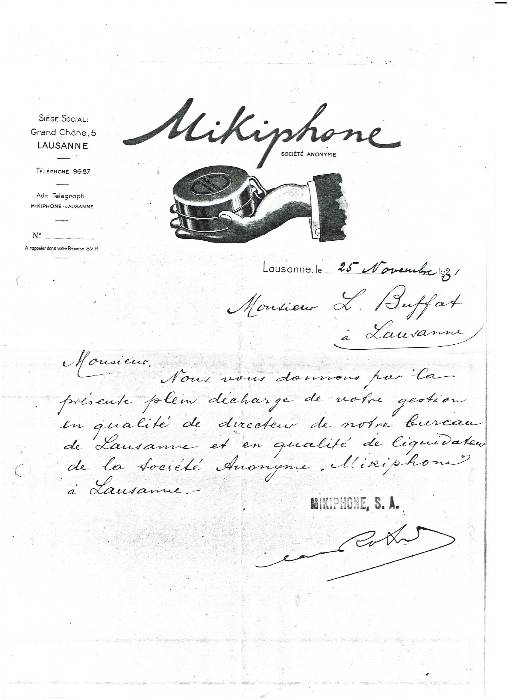 SIÈGE SOCIAL:
Grand Chêne, 5
LAUSANNE
TÉLÉPHONE 96-87
Adr. Télégraph.
MIKIPHONE-LAUSANNE
No
A rappeler dans votre Réponse S.V.P.
Mikiphone
SOCIÉTÉ ANONYME
Lausanne, le 25 Novembre 31
Monsieur L. Buffat
à Lausanne
Monsieur,
Nous vous donnons par la
présente plein décharge de votre gestion
en qualité de directeur de notre bureau
de Lausanne et en qualité de liquidateur
de la Société Anonyme "Mikiphone"
à Lausanne.-
MIKIPHONE, S. A.